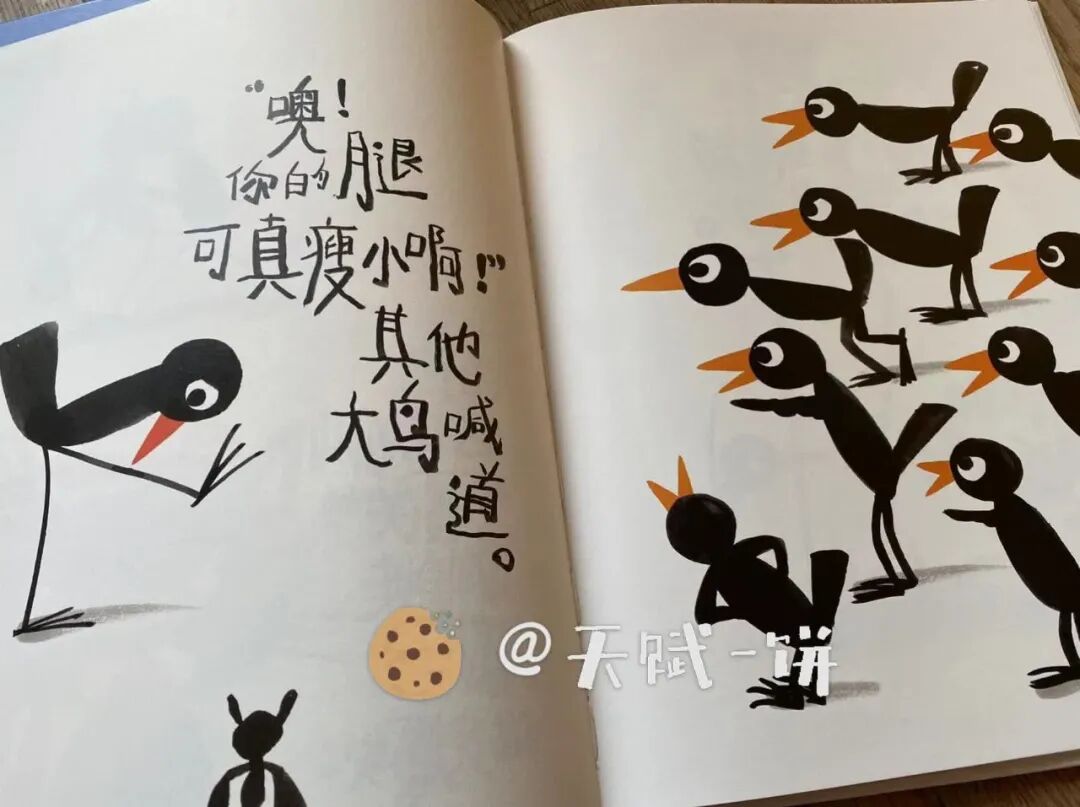 “噢！
你的腿
可真瘦小啊！”
其他
大鸟喊
道。
@天赋一饼